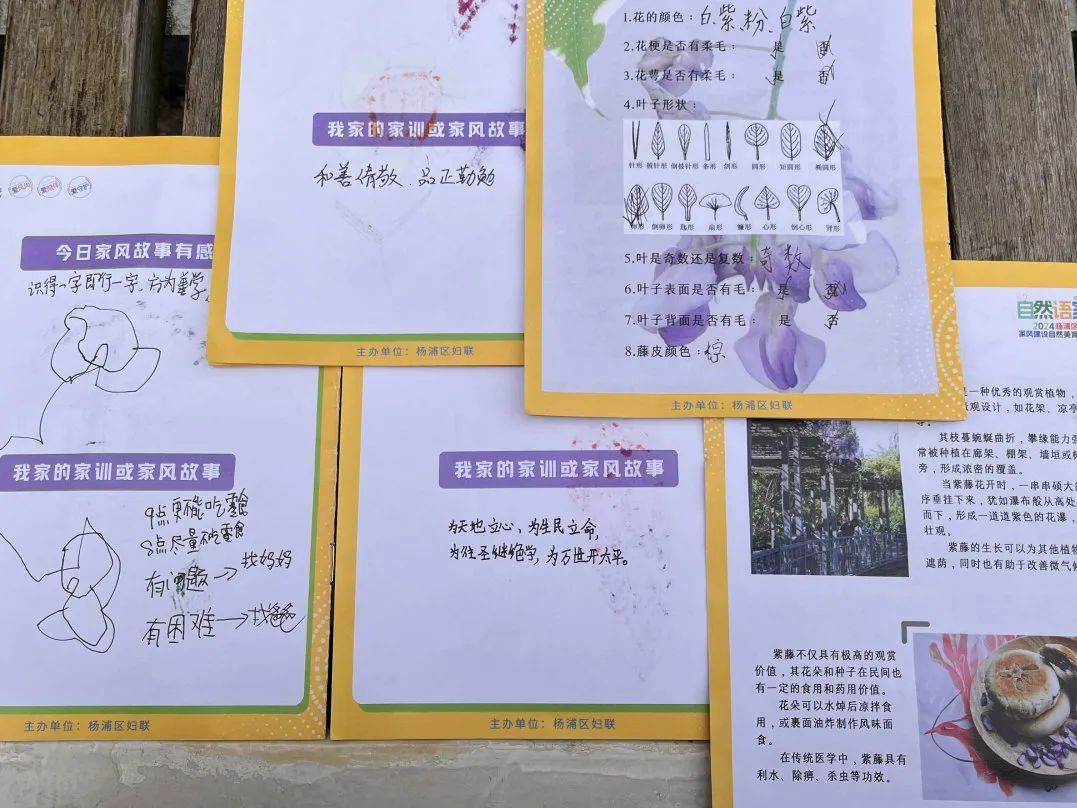 1.花的颜色：白、紫、粉、白紫
2.花梗是否有柔毛： 是 否
3.花萼是否有柔毛： 是 否
4.叶子形状：
针形 披针形 倒披针形 条形 剑形 圆形 矩圆形 椭圆形
卵形 倒卵形 匙形 扇形 镰形 心形 倒心形 肾形
5.叶是奇数还是复数：奇数
6.叶子表面是否有毛： 是 否
7.叶子背面是否有毛： 是 否
8.藤皮颜色：棕
主办单位：杨浦区妇联
我家的家训或家风故事
和善倩敬、品正勤勉
主办单位：杨浦区妇联
今日家风故事有感
识得一字即行一字，方为善学。
我家的家训或家风故事
9点不能吃零食
8点尽量不吃零食
有问题→找妈妈
有困难→找爸爸
主办单位：杨浦区妇联
我家的家训或家风故事
为天地立心，为生民立命，
为往圣继绝学，为万世开太平。
主办单位：杨浦区妇联
自然语
2024杨浦区
家风建设自然美育
是一种优秀的观赏植物，
观设计，如花架、凉亭
等。
其枝蔓蜿蜒曲折，攀缘能力强
常被种植在廊架、棚架、墙垣或
旁，形成浓密的覆盖。
当紫藤花开时，一串串硕大的
序垂挂下来，犹如瀑布般从高处
而下，形成一道道紫色的花瀑，
壮观。
紫藤的生长可以为其他植物
遮荫，同时也有助于改善微气候
紫藤不仅具有极高的观赏
价值，其花朵和种子在民间也
有一定的食用和药用价值。
花朵可以水焯后凉拌食
用，或裹面油炸制作风味面
食。
在传统医学中，紫藤具有
利水、除痹、杀虫等功效。